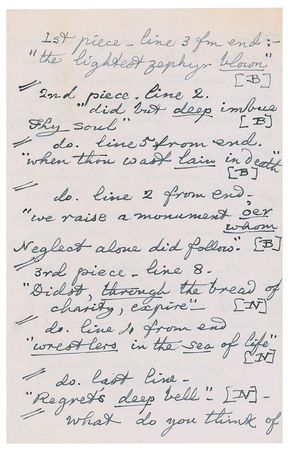 1st piece - line 3 fm end:-
"the lightest zephyr blown"
[B]
2nd piece. line 2.
"did but deep imbue
thy soul" [B]
do. line 5 from end.
"when thou wast lain in death"
[B]
do. line 2 from end-
"we raise a monument o'er
whom
Neglect alone did follow." [B]
3rd piece - line 8.
"Didst, through the bread of
charity, expire"- [N]
do. line 4 from end
"wrestlers in the sea of life"
[N]
do. last line-
"Regret's deep bell"- [N]-
what do you think of